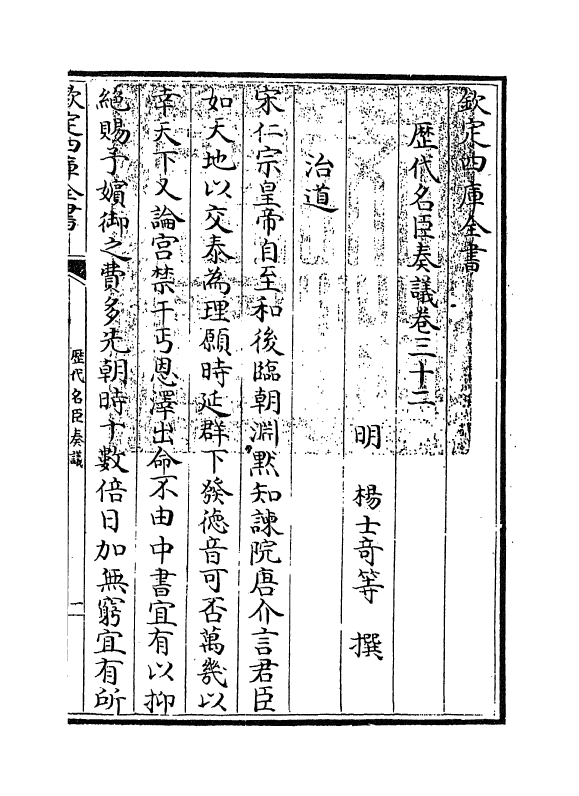 欽定四庫全書
歷代名臣奏議卷三十二
明　楊士奇等　撰
治道
宋仁宗皇帝自至和後臨朝淵默知諫院唐介言君臣
如天地以交泰為理願時延群下發德音可否萬幾以
幸天下又論宮禁干丐恩澤出命不由中書宜有以抑
絕賜予嬪御之費多先朝時十數倍日加無窮宜有所
欽定四庫全書
歷代名臣奏議
一